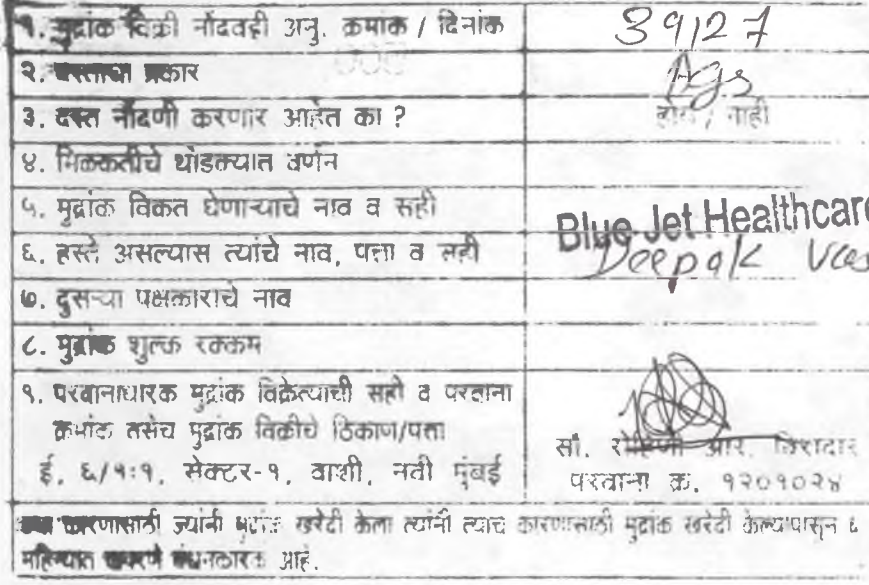 १. मुद्रांक विक्री नोंदवही अनु. क्रमांक / दिनांक 39127
२. दस्ताचा प्रकार Ags
३. दस्त नोंदणी करणार आहेत का ? होय / नाही
४. मिळकतीचे थोडक्यात वर्णन
५. मुद्रांक विकत घेणाऱ्याचे नाव व सही Blue Jet Healthcare
६. हस्ते असल्यास त्यांचे नाव, पत्ता व सही Deepak
७. दुसऱ्या पक्षकाराचे नाव
८. मुद्रांक शुल्क रक्कम
९. परवानाधारक मुद्रांक विक्रेत्याची सही व परवाना
क्रमांक तसेच मुद्रांक विक्रीचे ठिकाण/पत्ता
ई, ६/१:१, सेक्टर-१, वाशी, नवी मुंबई
सौ. रोहिणी आर. बिरादार
परवाना क्र. १२०१०२४
ज्या कारणासाठी ज्यांनी मुद्रांक खरेदी केला त्यांनी त्याच कारणासाठी मुद्रांक खरेदी केल्यापासून ६
महिन्यात वापरणे बंधनकारक आहे.